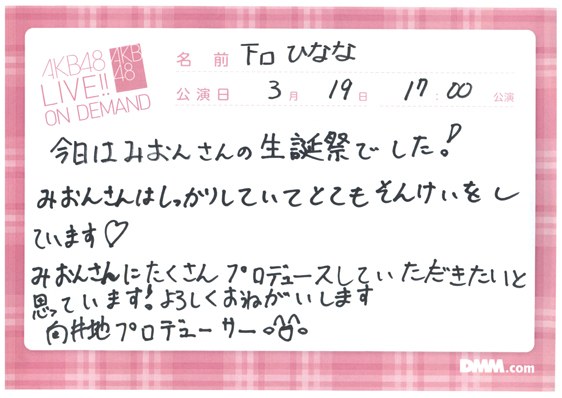 AKB48
LIVE!!
ON DEMAND
AKB
48
名前 下口ひなな
公演日 3月 19日 17:00 公演
今日はみおんさんの生誕祭でした!
みおんさんはしっかりしていてとてもそんけいをし
ています♡
みおんさんにたくさんプロデュースしていただきたいと
思っています!よろしくおねがいします
向井地プロデューサー
DMM.com